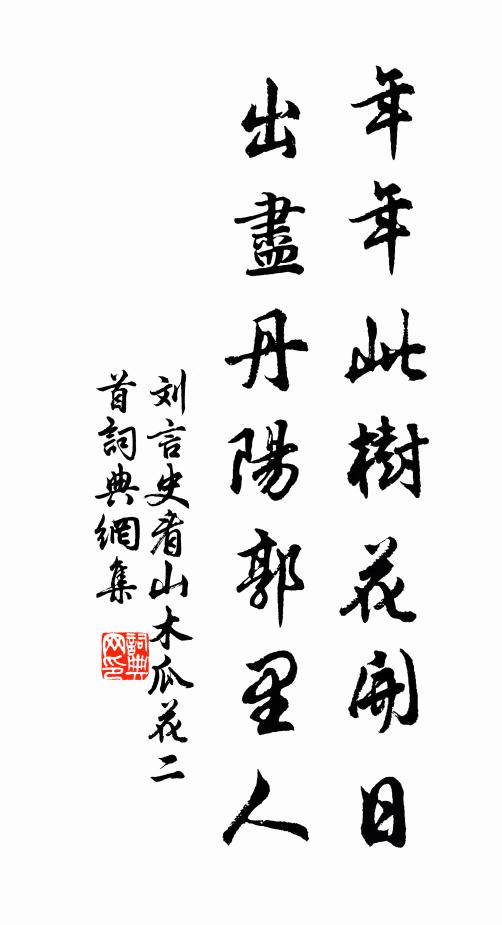 年年此樹花開日
出盡丹陽郭里人
刘言史看山木瓜花二
首詞典網集
詞典
网印